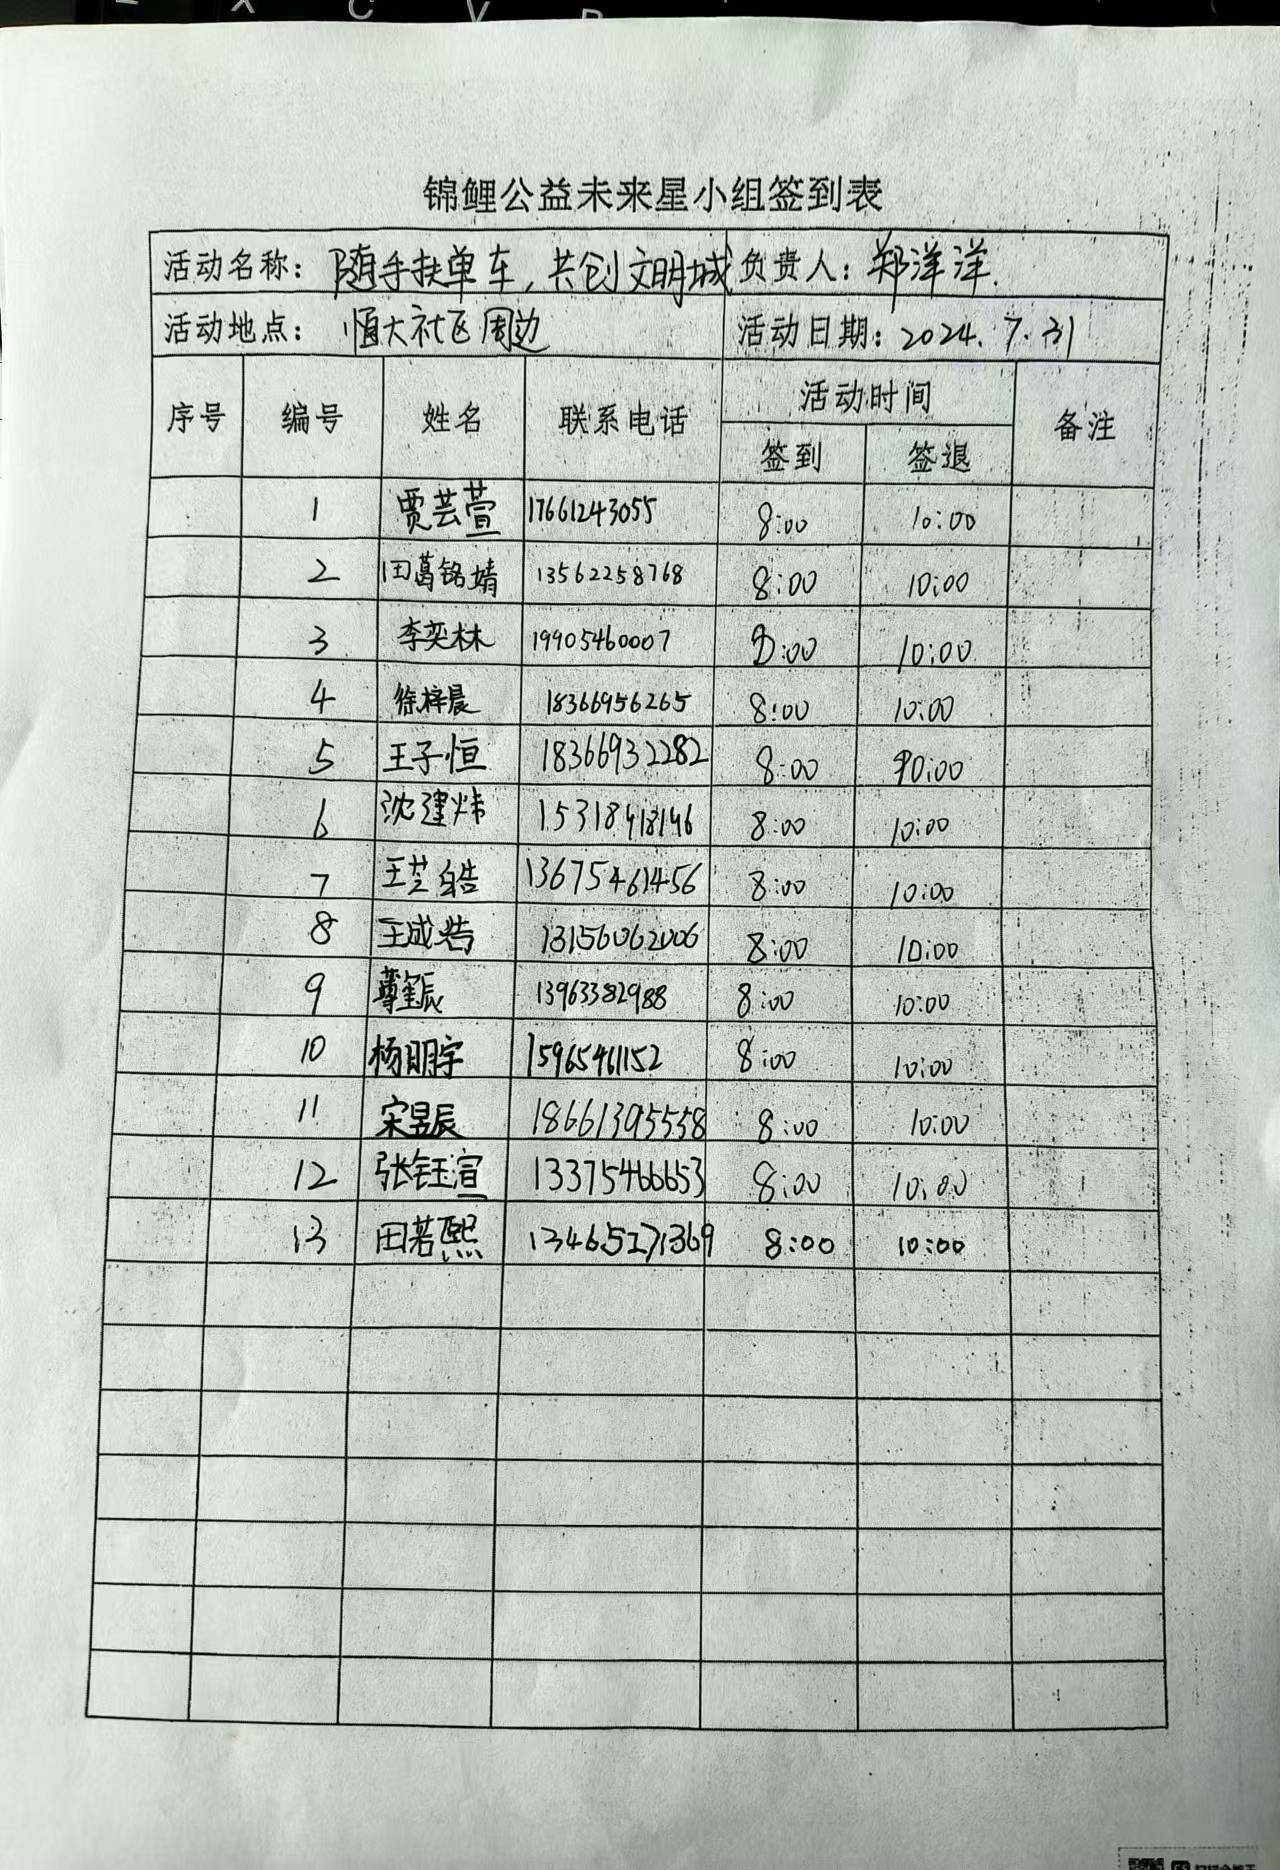 锦鲤公益未来星小组签到表
活动名称: 随手扶单车,共创文明城 负责人: 郑洋洋.
活动地点: 恒大社区周边 活动日期: 2024.7.31
序号 编号 姓名 联系电话 活动时间 备注
签到 签退
1 贾芸萱 17661243055 8:00 10:00
2 田葛铭婧 13562258768 8:00 10:00
3 李奕林 19905460007 8:00 10:00
4 徐梓晨 18366956265 8:00 10:00
5 王子恒 18366932282 8:00 10:00
6 沈建炜 15318418146 8:00 10:00
7 王芝皓 13675461456 8:00 10:00
8 王成浩 13156062006 8:00 10:00
9 13963382988 8:00 10:00
10 杨明宇 15965461152 8:00 10:00
11 宋昱辰 18661395558 8:00 10:00
12 张钰渲 13375466653 8:00 10:00
13 田若熙 13465271369 8:00 10:00